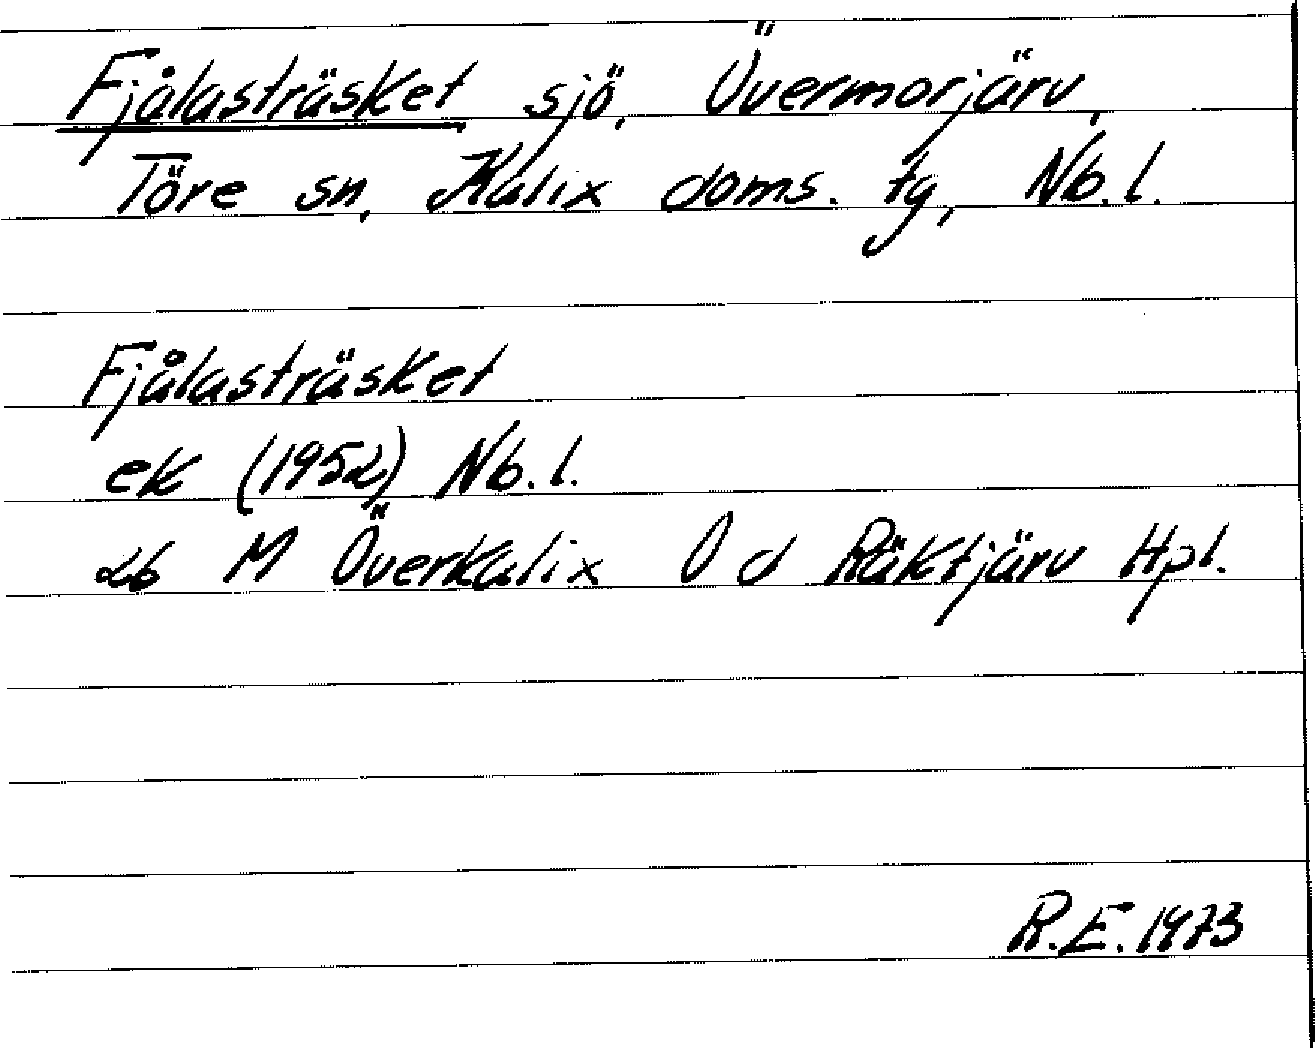 Fjålasträsket sjö, Övermorjärv,
Töre sn, Kalix doms. tg, Nb. l.
Fjålasträsket
ek (1952) Nb. l.
26 M Överkalix O d Räktjärv Hpl.
R.E. 1973